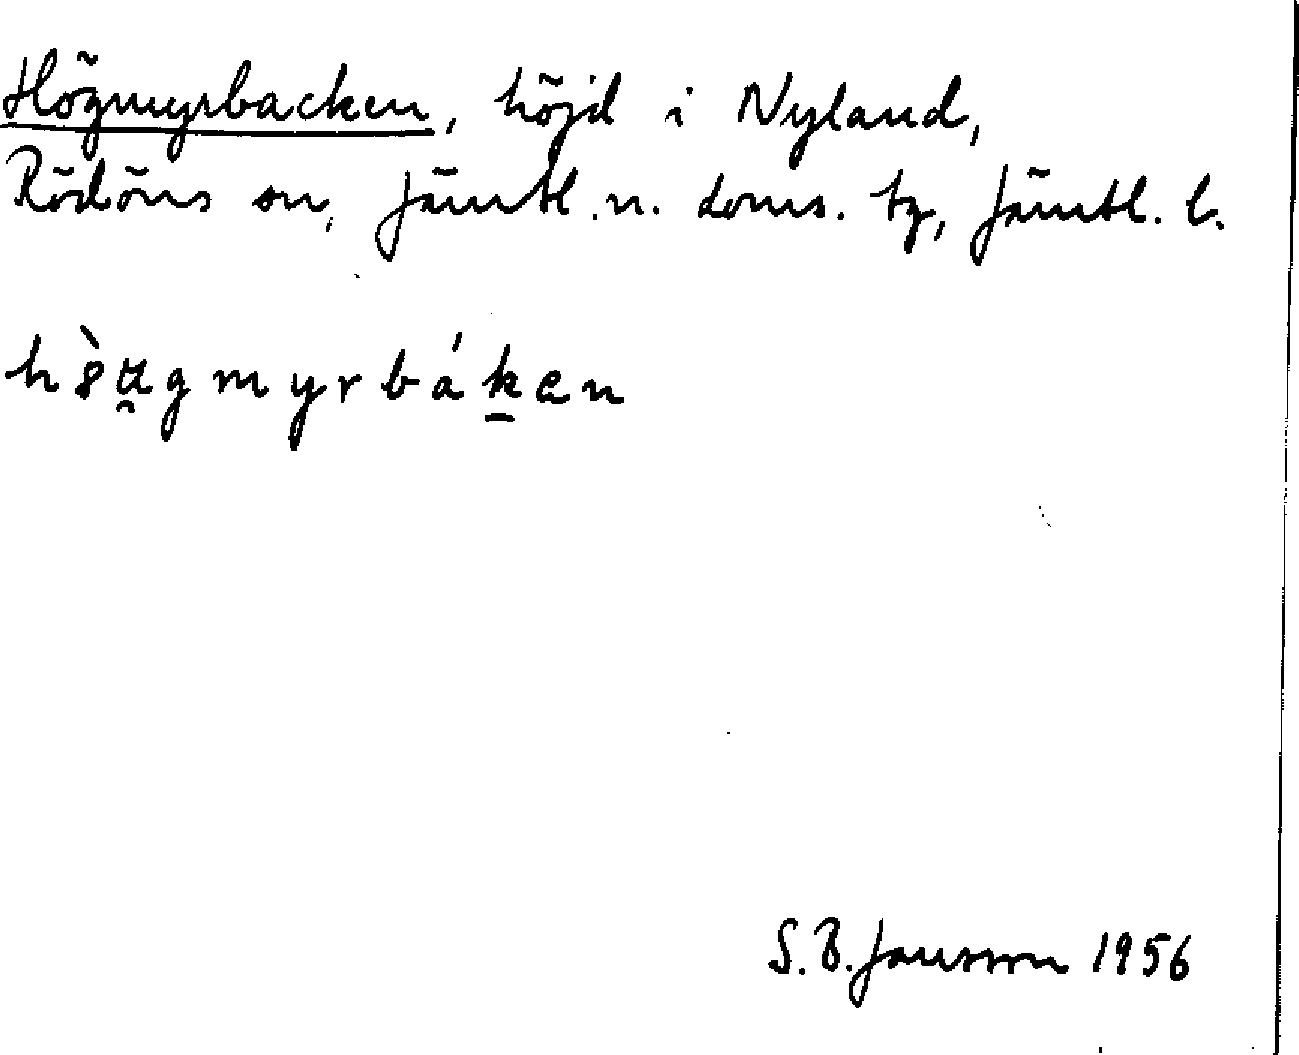 Högmyrbacken, höjd i Nyland,
Rödöns sn, Jämtl. n. doms. tg, Jämtl. l.
S.B. Jansson 1956